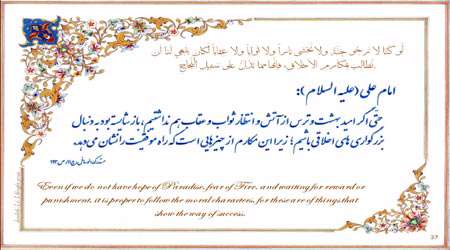 لو کنا لا نرجو جنة ولا نخشی ناراً ولا ثواباً ولا عقاباً لکان ینبغی لنا ان
نطالب بمکارم الاخلاق، فإنها مما تدل علی سبیل النجاح
امام علی (علیه السلام):
حتی اگر امید بهشت و ترس از آتش و انتظار ثواب و عقاب هم نداشتیم، باز شایسته بود به دنبال
بزرگواری های اخلاقی باشیم؛ زیرا این مکارم از چیزهایی است که راه موفقیت را نشان می‌دهد.
Even if we do not have hope of Paradise, fear of Fire, and waiting for reward or
punishment, it is proper to follow the moral characters, for these are of things that
show the way of success.
27